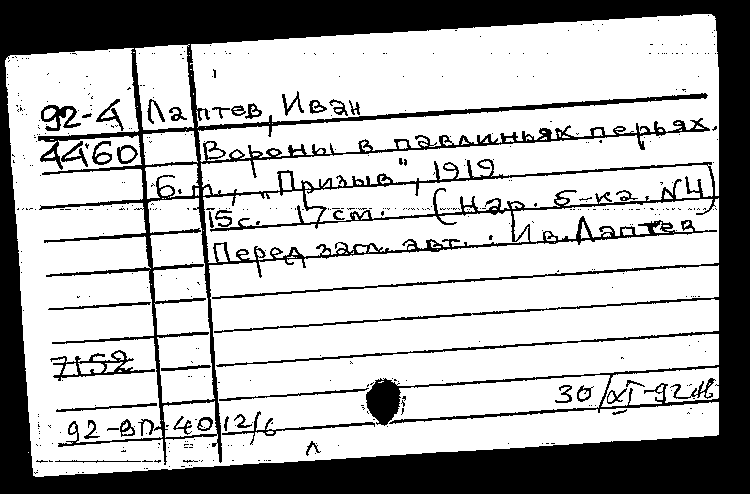 92-4 Лаптев, Иван
4460 Вороны в павлиньях перьях.
б. м., „Призыв", 1919.
15с. 17см. (Нар. б-ка. №4)
Перед загл. авт.: Ив. Лаптев
7152
30/XI-92
92-ВП-4012/6